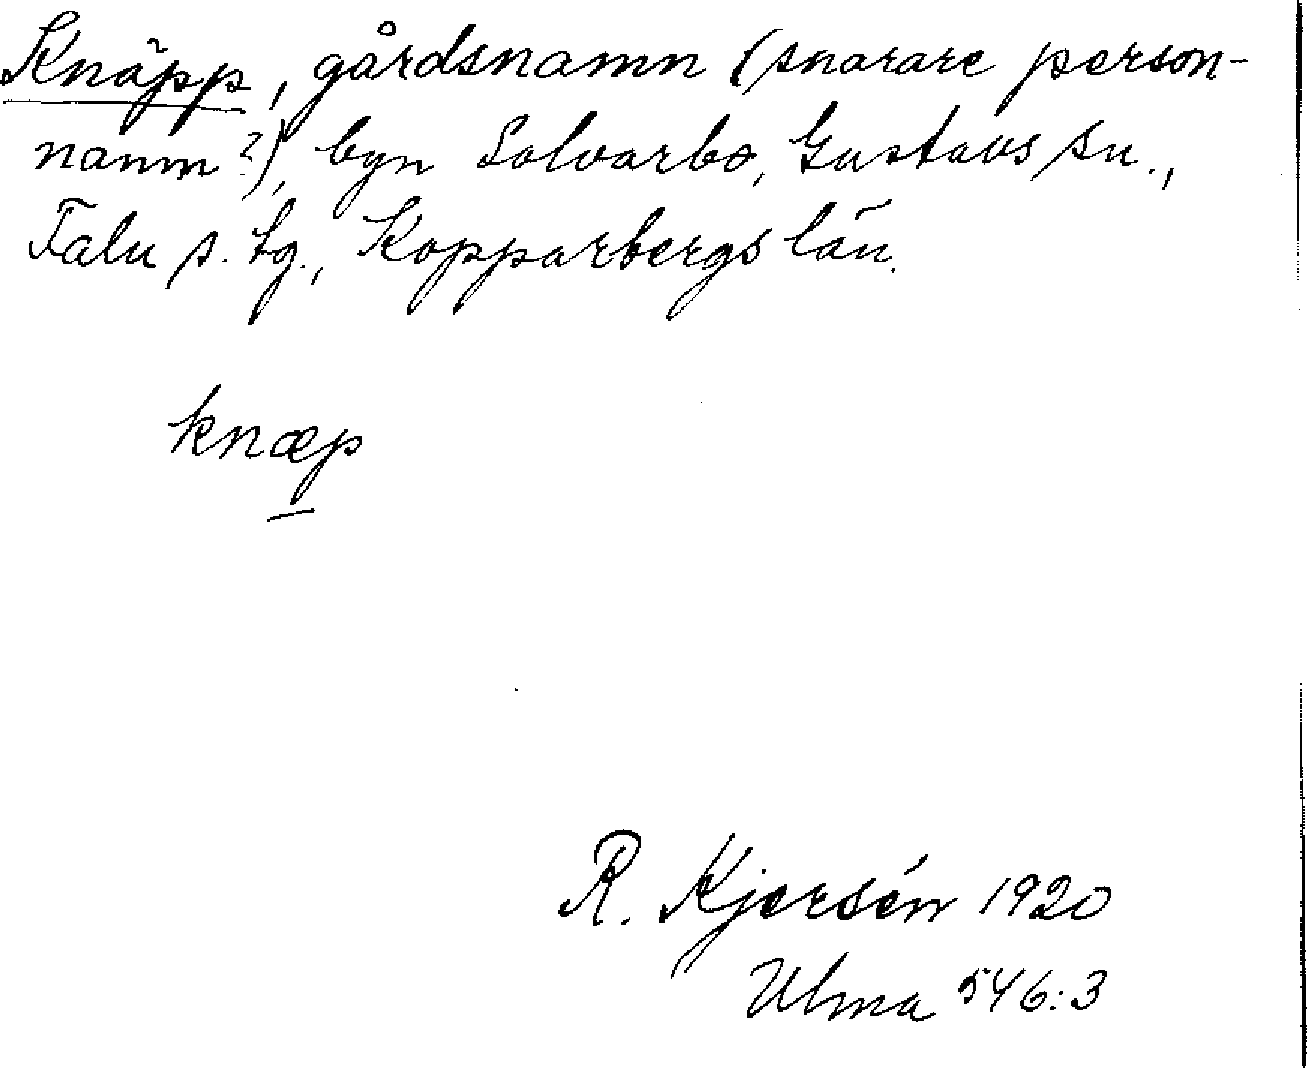 Knäpp, gårdsnamn (snarare person-
namn?), byn Solvarbo, Gustavs sn.,
Falu s. tg., Kopparbergs län.
knæp
R. Kjersén 1920
Ulma 546:3